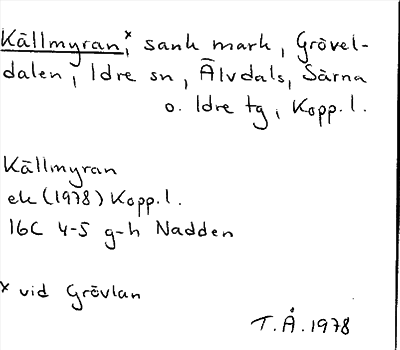 Källmyran,x sank mark, Grövel-
dalen, Idre sn, Älvdals, Särna
o. Idre tg, Kopp.l.
Källmyran
ek (1978) Kopp.l.
16C 4-5 g-h Nadden
x vid Grövlan
T.Å. 1978